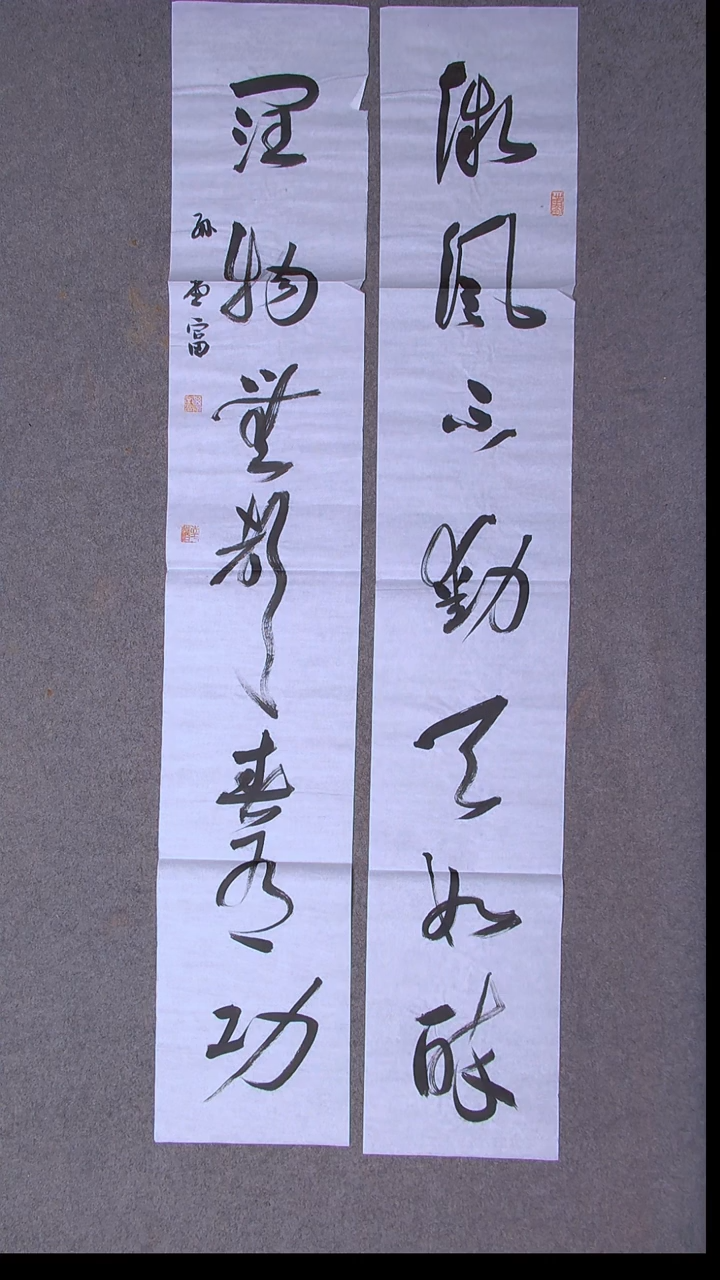 微風不動天如醉
潤物無聲春有功
孫雲富